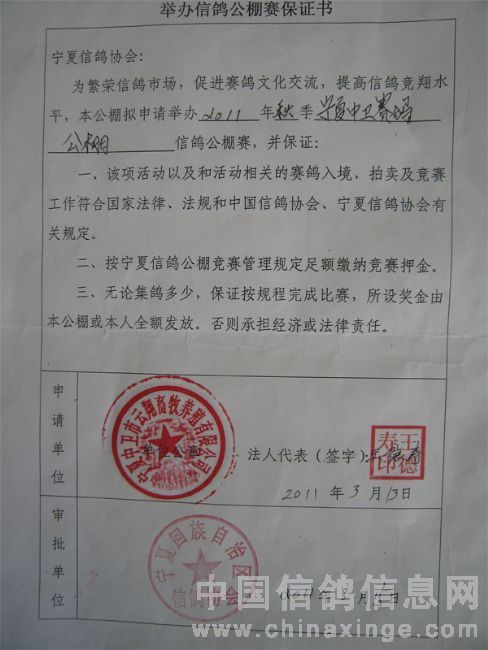 举办信鸽公棚赛保证书
宁夏信鸽协会：
为繁荣信鸽市场，促进赛鸽文化交流，提高信鸽竞翔水
平，本公棚拟申请举办 2011 年 秋 季 宁夏中卫赛鸽
公棚 信鸽公棚赛，并保证：
一、该项活动以及和活动相关的赛鸽入境、拍卖及竞赛
工作符合国家法律、法规和中国信鸽协会、宁夏信鸽协会有
关规定。
二、按宁夏信鸽公棚竞赛管理规定足额缴纳竞赛押金。
三、无论集鸽多少，保证按规程完成比赛，所设奖金由
本公棚或本人全额发放。否则承担经济或法律责任。
申请单位
宁夏中卫市云翔畜牧养殖有限公司
单位公章
法人代表（签字）：王德寿
王德寿印
2011 年 3 月 13 日
审批单位
宁夏回族自治区
信鸽协会
2011 年 月 日
中国信鸽信息网
www.chinaxinge.com